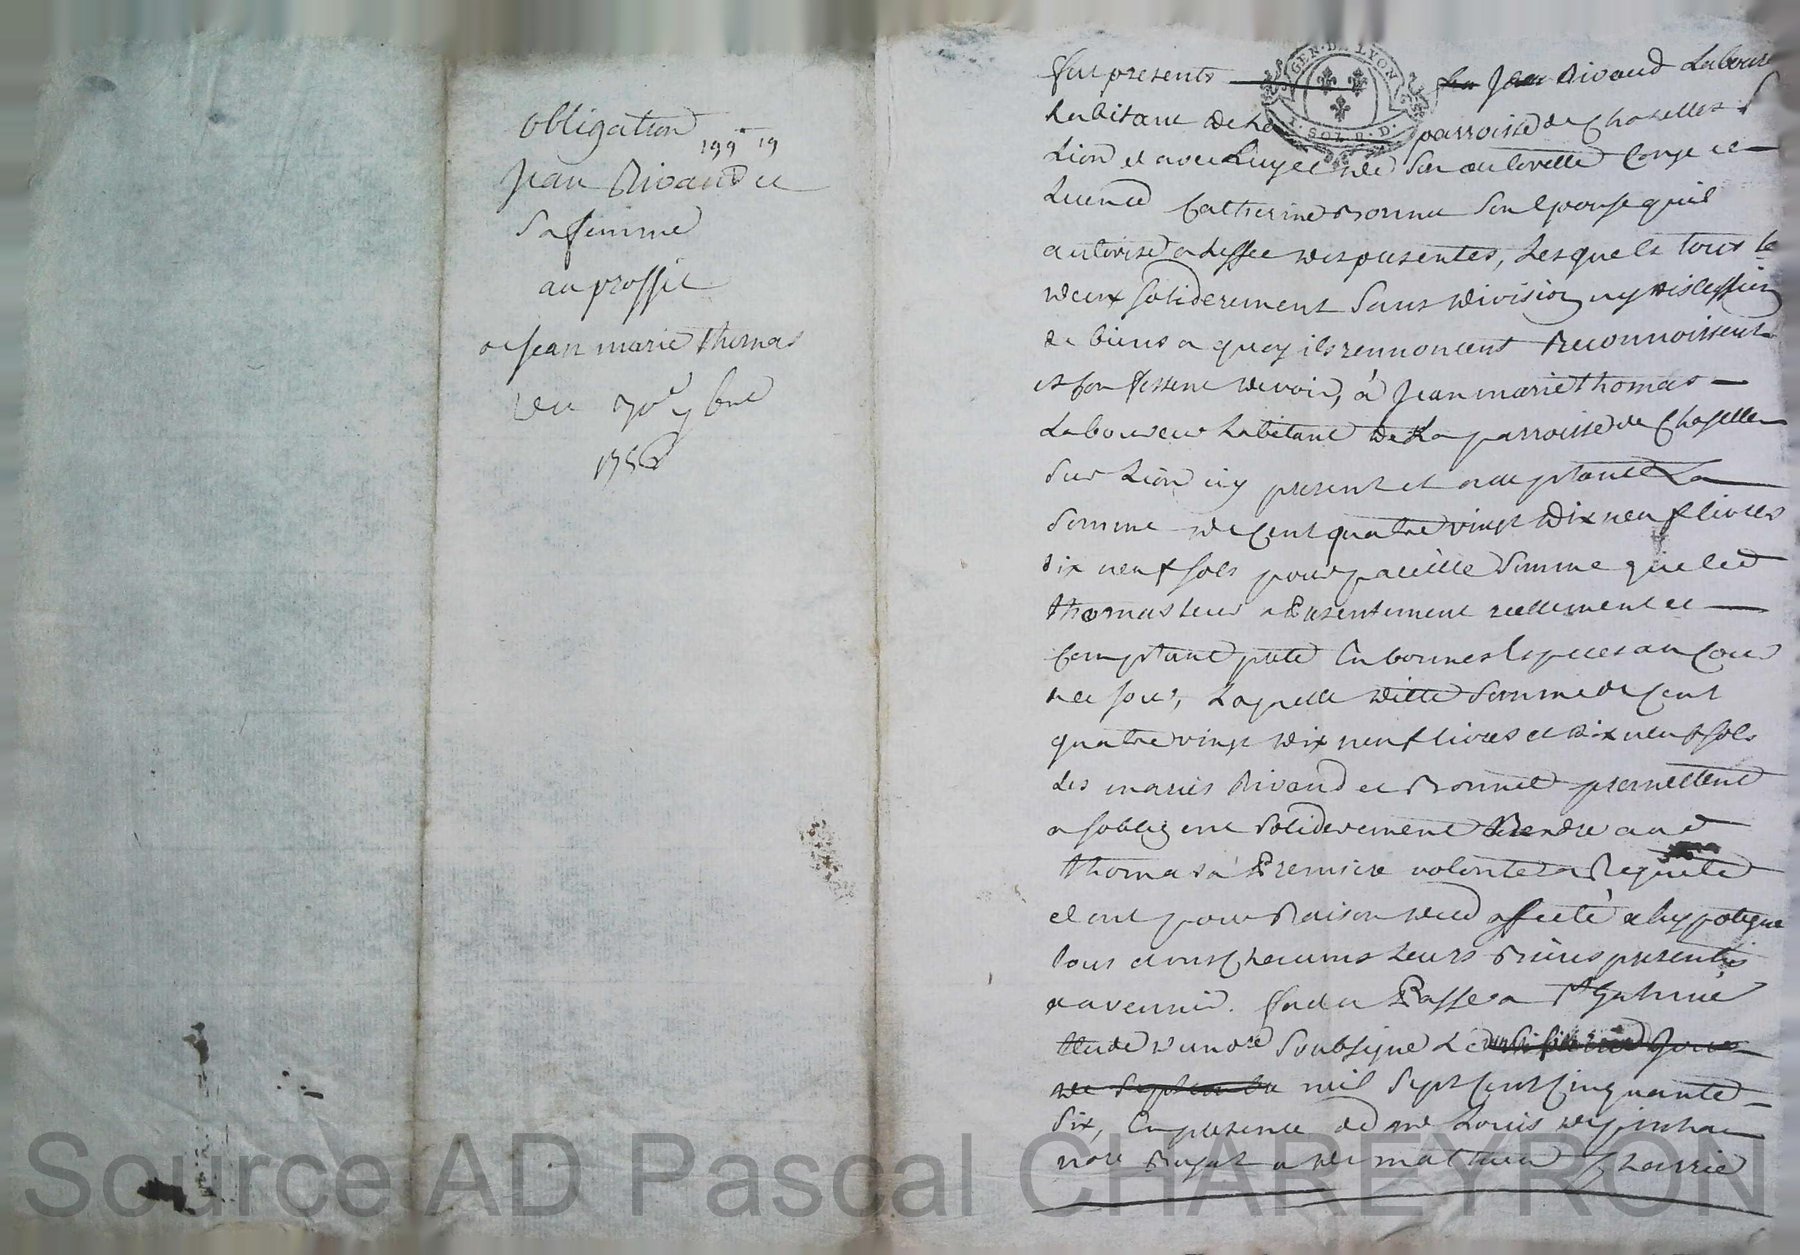 obligation
199 ᵗᵗ 19
Jean Rivaud et
sa femme
au proffit
de Jean marie thomas
du 7bre
1756
GEN. DE LYON
1. SOL. P. D.
fut presents Jean Rivaud Laboure
habitant de La parroisse de Chazelles S
Lion et avec Luy et de Son authorité Conge et
Licence Catherine Bonnet Son Epouse quil
authorise a Leffet des presentes, Lesquels tous Le
deux soliderement Sans division ny discussion
de biens a quoy ils rennoncent Reconnoissent
et confessent devoir, à Jean marie thomas
Laboureur habitant de La parroisse de Chazelles
Sur Lion icy present et acceptant La
Somme de Cent quatre vingt dix neuf livres
dix neuf sols pour pareille Somme que led
thomas leur a Presentement reellement et
Comptant preté En bonnes Especes au Cour
de ce jour, Laquelle ditte Somme de Cent
quatre vingt dix neuf livres et dix neuf sols
Les mariés Rivaud et Bonnet promettent
et sobligent soliderement Rendre aud
thomas à Premiere volonté & Requete
et ont pour Raison de ce affecté & hypoteque
tous et uns Chacuns Leurs Biens presents
& avenir. fait et Passé a St Galmier
Etude du nore Soubsigné Le
de Septembre mil Sept Cent Cinquante
Six, En presence de me Louis
nore Royal & de mathieu Charrie
Source AD Pascal CHAREYRON